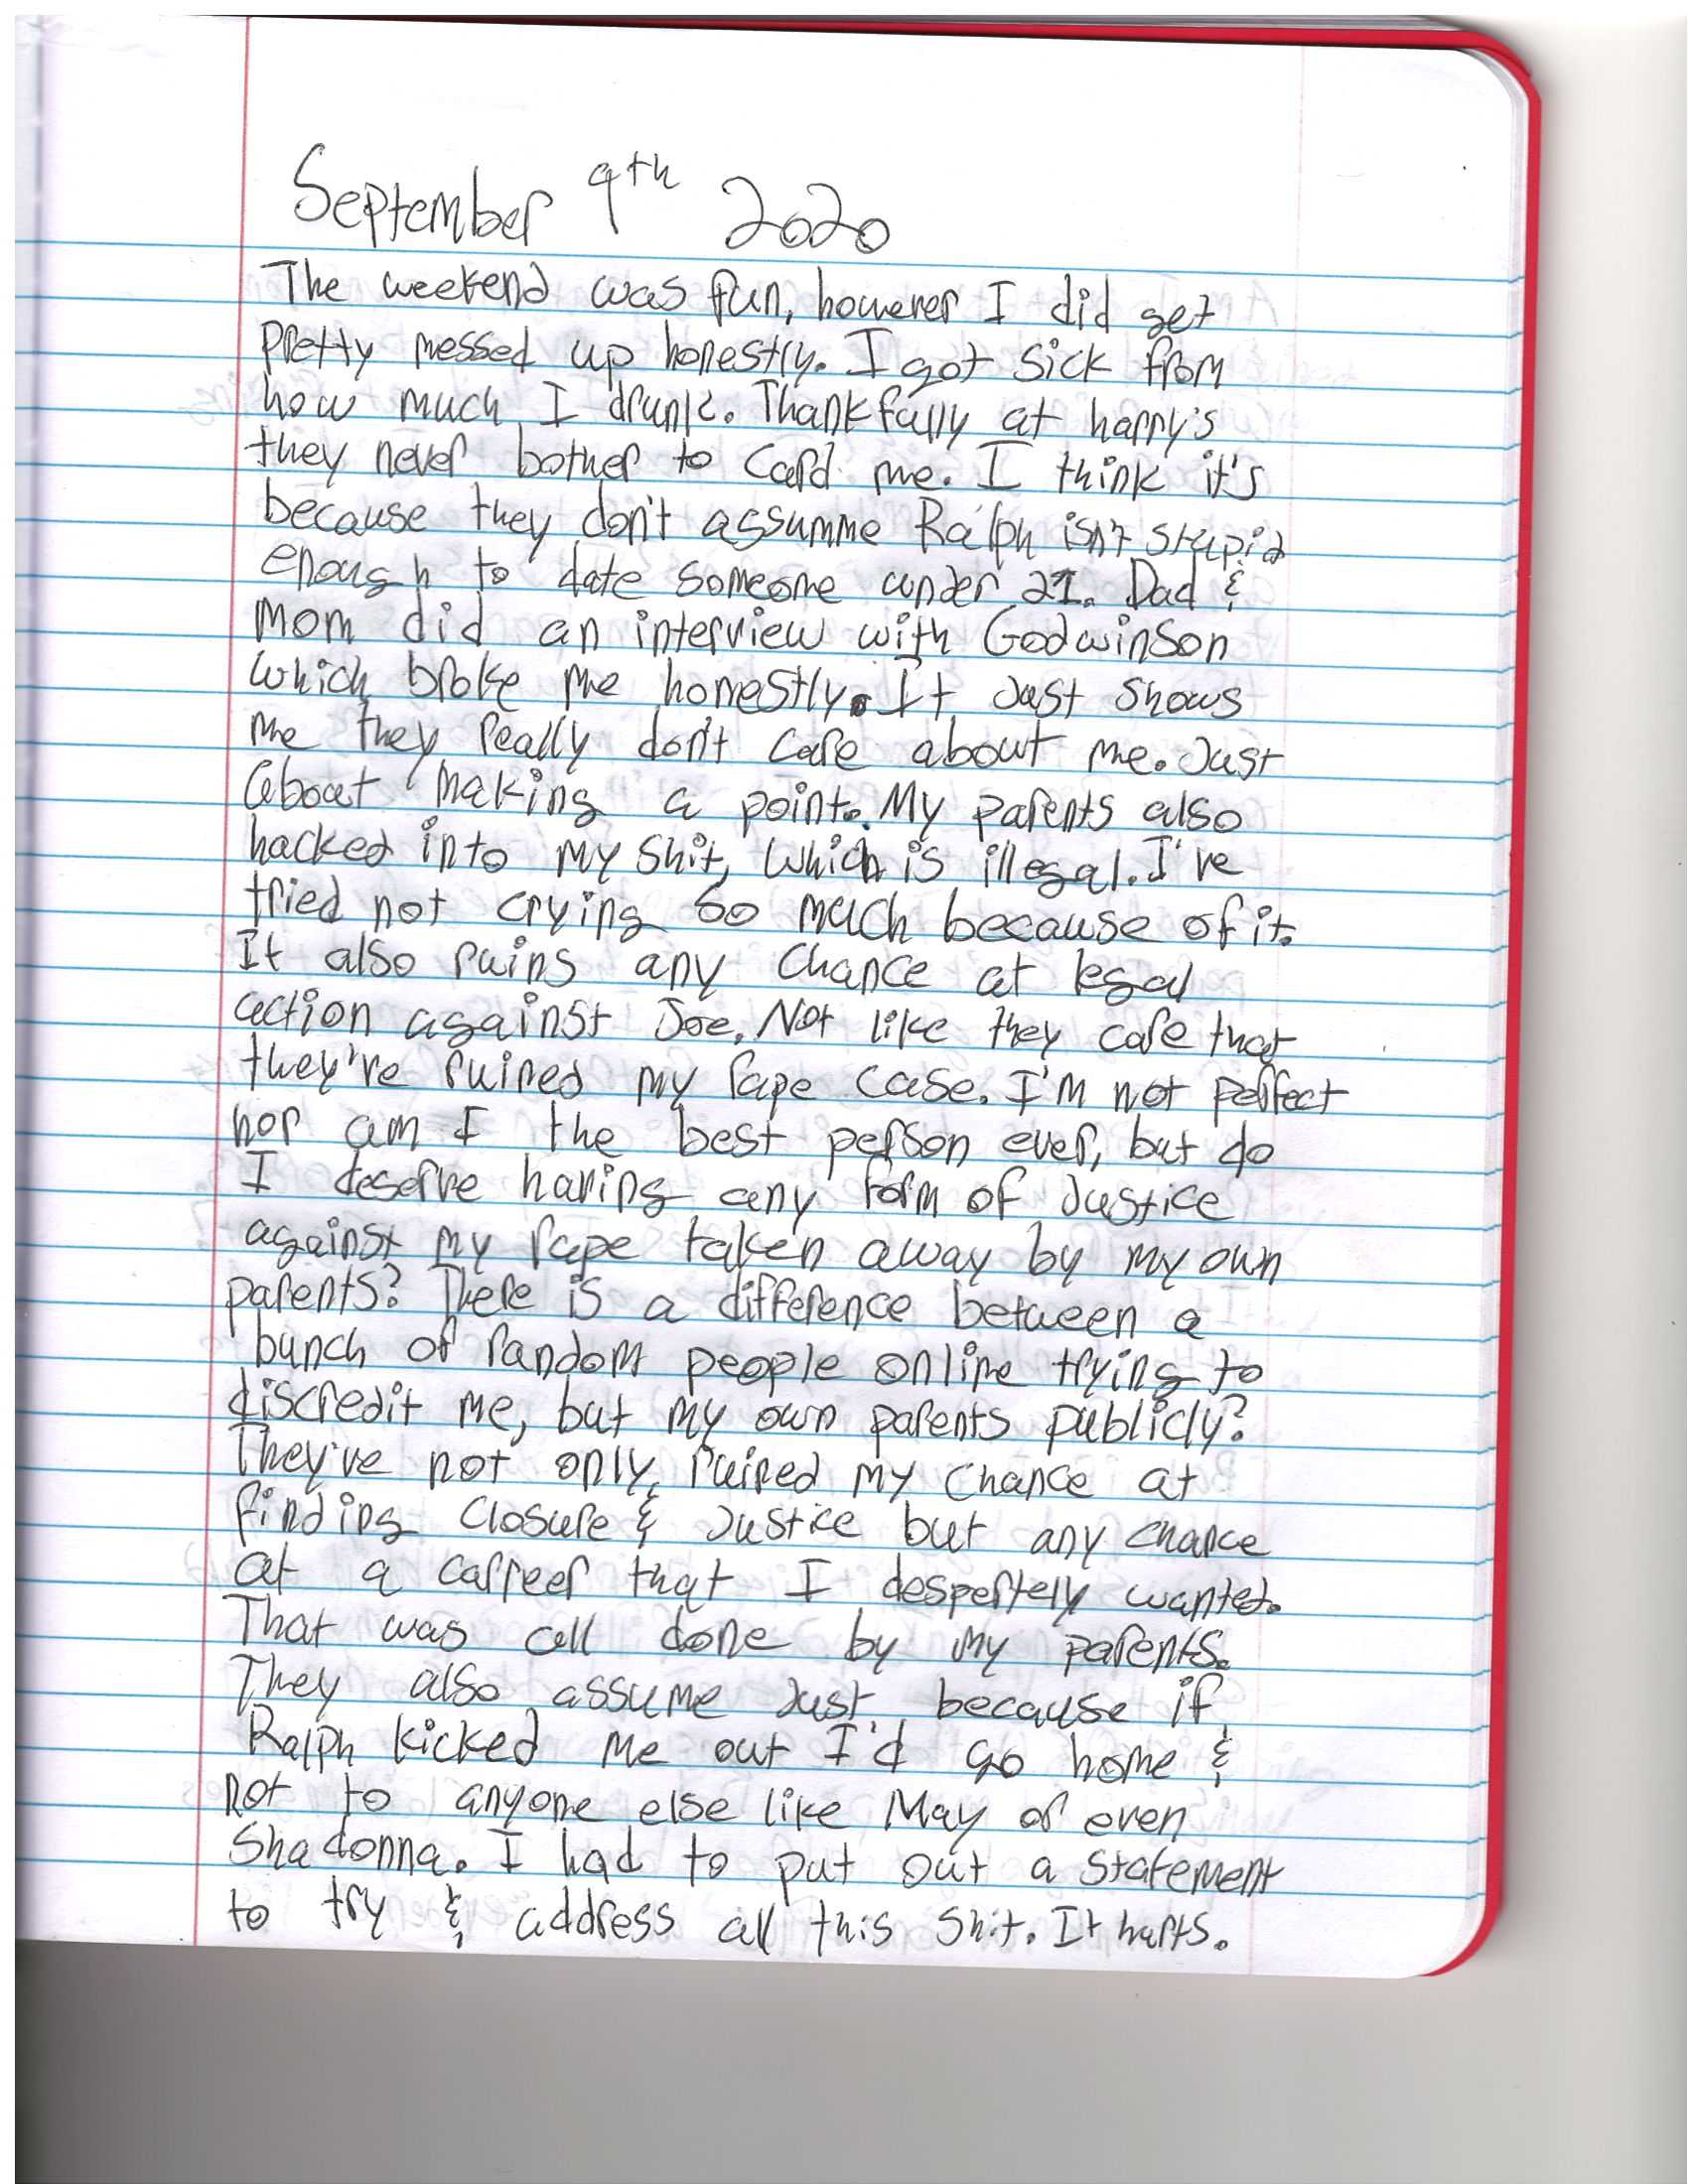 September 9th 2020
The weekend was fun, however I did get
pretty messed up honestly. I got sick from
how much I drunk. Thankfully at harry's
they never bother to card me. I think it's
because they don't assumme Ralph isn't stupid
enough to date someone under 21. Dad &
Mom did an interview with Godwinson
which broke me honestly. It Just shows
me they really don't care about me. Just
about making a point. My parents also
hacked into my shit, which is illegal. I've
tried not crying so much because of it.
It also ruins any chance at legal
action against Joe. Not like they care that
they've ruined my rape case. I'm not perfect
nor am I the best person ever, but do
I deserve having any form of Justice
against my rape taken away by my own
parents? There is a difference between a
bunch of random people online trying to
discredit me, but my own parents publicly?
They've not only ruined my chance at
finding closure & Justice but any chance
at a carreer that I despertely wanted.
That was all done by my parents.
They also assume Just because if
Ralph kicked me out I'd go home &
not to anyone else like May or even
Shadonna. I had to put out a statement
to try & address all this shit. It hurts.